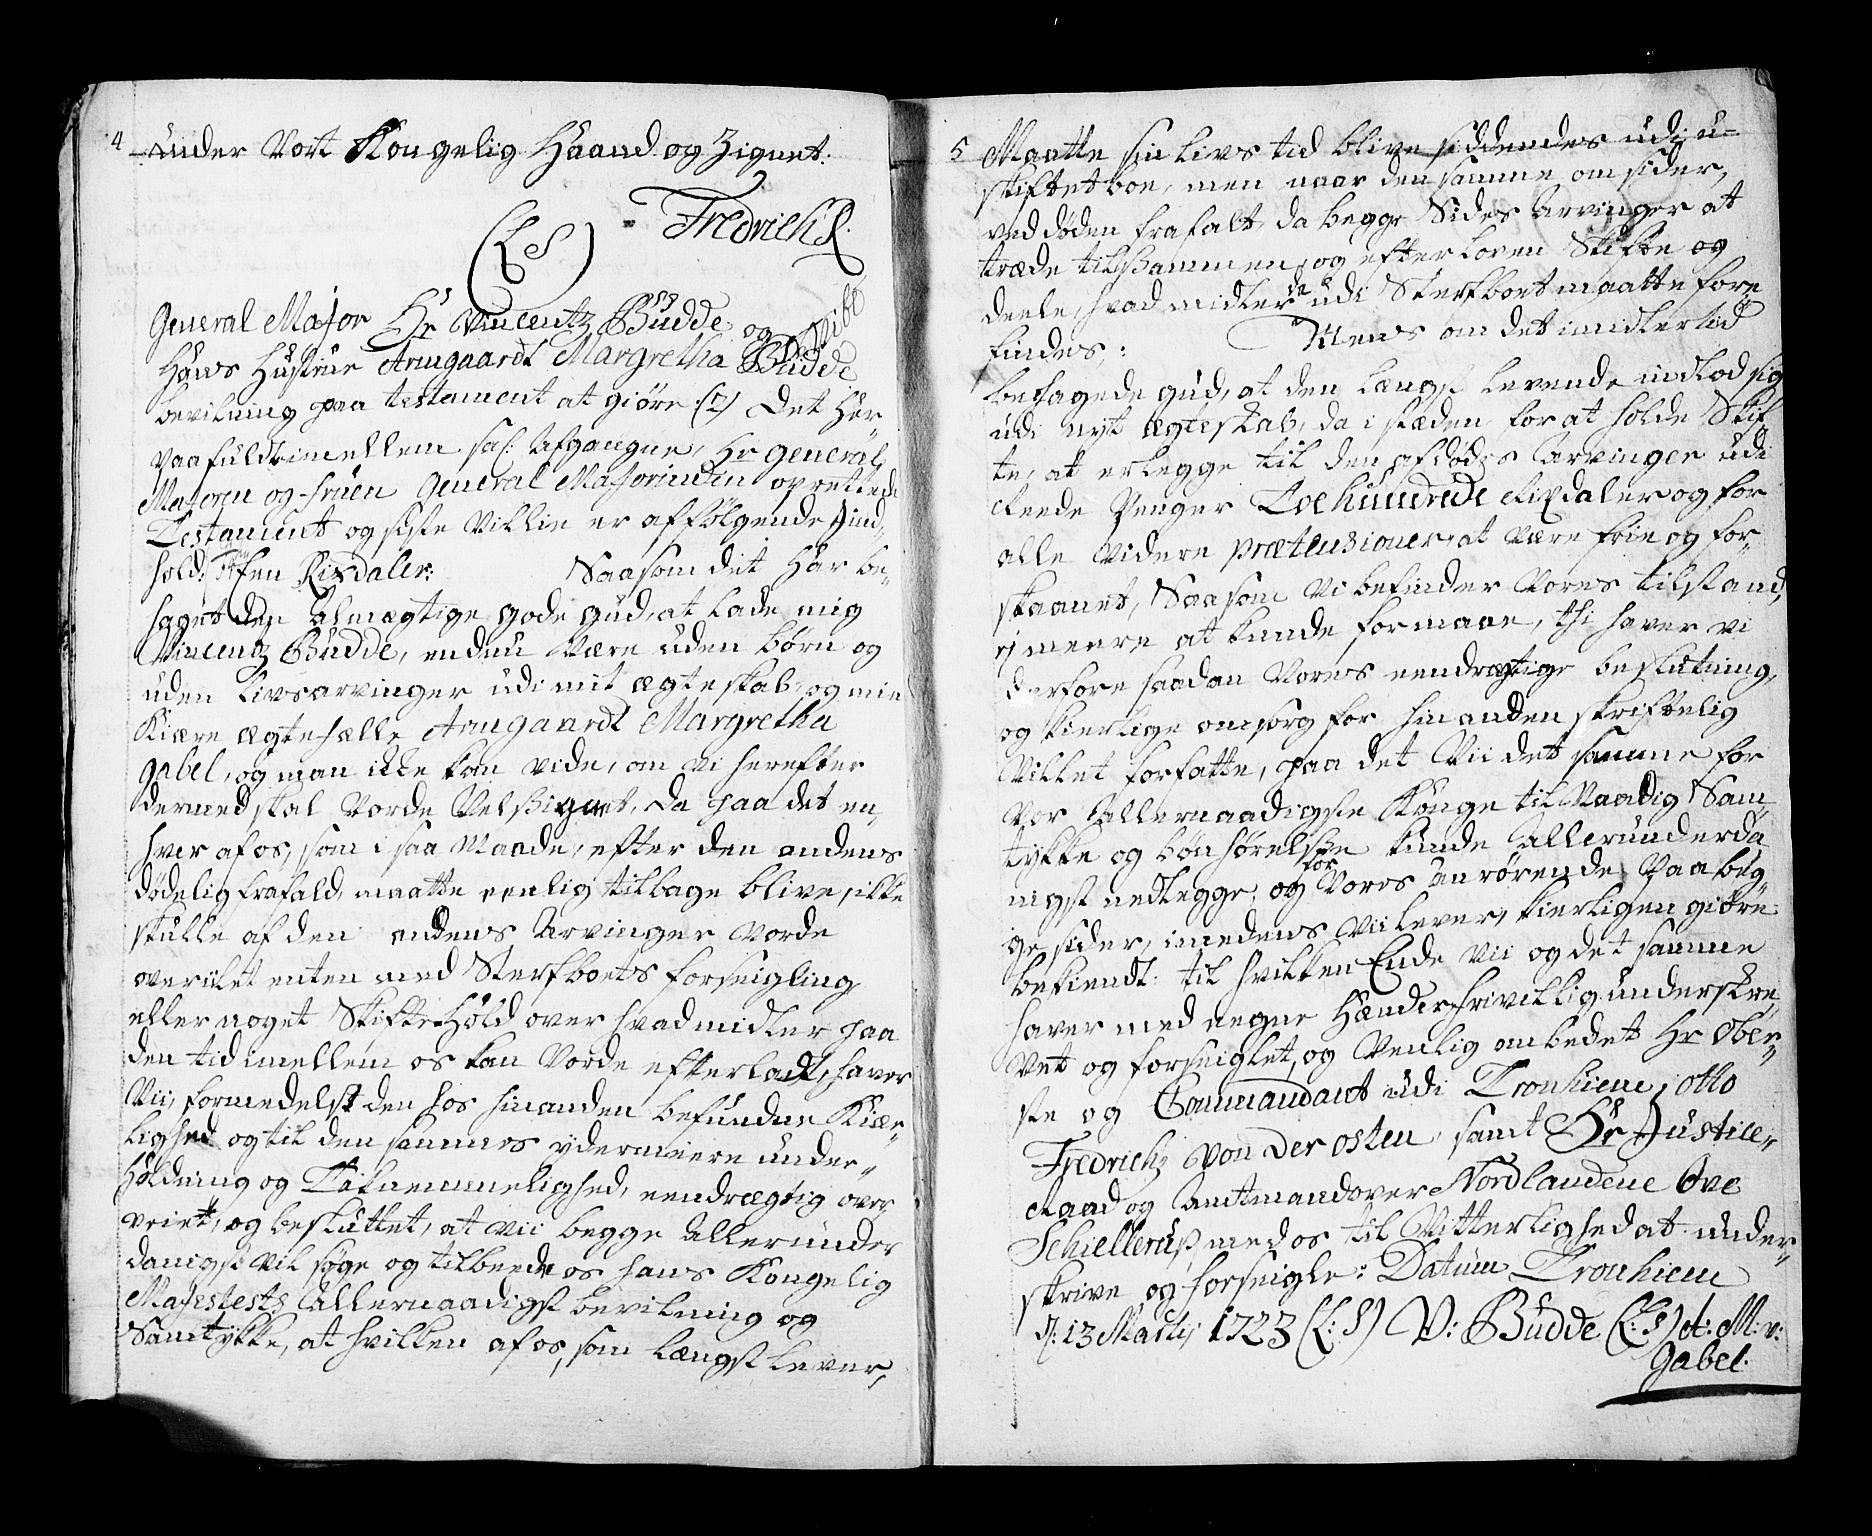 4
under Vort Kongelig Haand og Zignet:
Fredrich R.
(L S)
General Major Hr Vincentz Büdde og
Hans Hustrue Armgaardt Margretha Büdde
bevilning paa testament at giøre (2) Det her
paafuldt imellem sal: Afgangne, Hr General
Majoren og Fruen General Majorinden oprettede
Testament og siste Villie er af følgende Jind„
hold: Rixdaler: Saasom det har be„
haget den Almægtige gode Gud, at lade mig
Vincentz Büdde, endnu Være uden børn og
uden livsarvinger udi mit ægteskab og min
Kiære ægtefælle Armgaardt Margretha
Gabel, og man ikke kan vide, om vi herefter
dermed skal Vorde Velsignet, da paa det en„
hver af os, som i saa Maade, efter den andens
dødelig frafald, maatte eenlig tilbage blive, ikke
skulle af den andens Arvinger vorde
overilet enten med Sterfboets forseigling
eller noget Skifte-Hold over hvad midler paa
den tid imellem os kan Vorde efterladt, haver
Vii, formedelst den hos hinanden befundne Kiær„
lighed og til den sammes ydermeere under„
Holdning og Taknemmelighed, eendrægtig over
veiet, og besluttet, at vii begge Allerunder
danigst vil søge og tilbeede os hans Kongelig
Majestets Allernaadigst bevilning og
Samtykke, at hvilken af os, som længst lever,
5
Maatte sin livs tid blive siddendes udi u„
skiftet boe, men naar den samme omsider,
ved døden frafalt, da begge Sides Arvinger at
træde tilsammen, og efter loven Skifte og
deele, hvad midler da udi Sterfboet maatte fore
findes: Mens om det imidlertid
behagede Gud, at den længst levende indlod sig
udi nyt ægteskab, da i stæden for at holde Skif„
te, at erlegge til den afdødes Arvinger udi
Reede Penger Toehundrede Rixdaler og for
alle videre prætensioner, at være frie og for„
skaanet, Saasom Vi befinder Vores tilstand,
ej meere at kunde formaae, thi haver vi
derfore saadan Vores eendrægtige beslutning,
og kierlige omsorg for hinanden skriftelig
Villet forfatte, paa det Vii det samme for
Vor Allernaadigste Konge til Naadig Sam„
tykke og bønhørelse kunde Allerunderda
nigst nedlegge, og for Vores Anrørende paa beg„
ge sider, imedens Vii lever, kierligen giøre
bekiendt: til hvilken Ende vii og det samme
haver med egne Hænder frivillig underskre„
Vet og forseiglet, og Venlig ombedet Hr Ober„
ste og Commandant udi Tronhiem, Otto
Fredrich von Der Osten, samt Hr Justice„
Raad og Amtmand over Nordlandene Ove
Schiellerüp, med os til Vitterlighed at under„
skrive og forseigle: Datum Tronhiem
d: 13 Martij 1723 (L: S) V: Büdde (L: S) A: M: v:
Gabel.